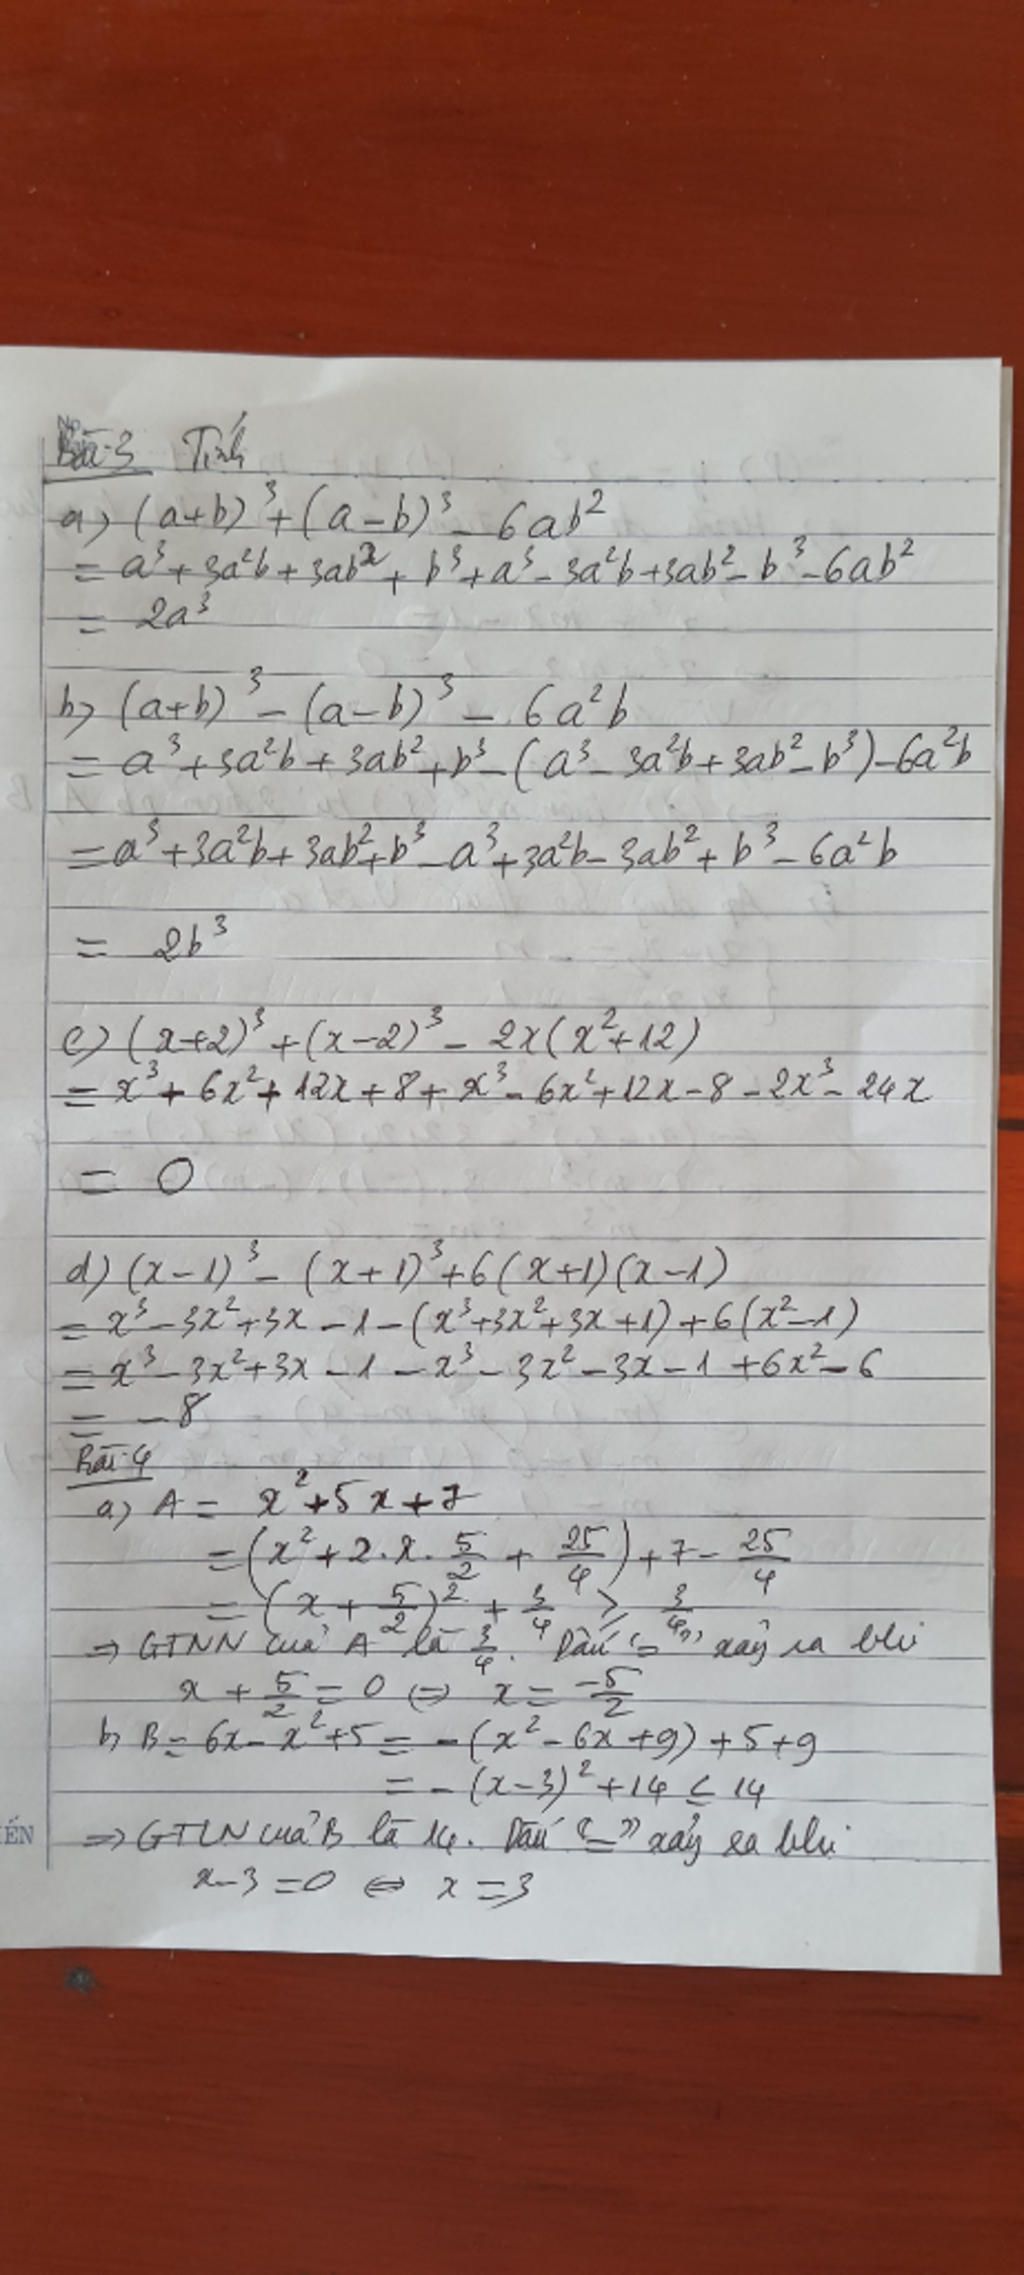 No.
Bài 3 Tính
a) (a+b)³ + (a-b)³ - 6ab²
= a³ + 3a²b + 3ab² + b³ + a³ - 3a²b + 3ab² - b³ - 6ab²
= 2a³
b) (a+b)³ - (a-b)³ - 6a²b
= a³ + 3a²b + 3ab² + b³ - (a³ - 3a²b + 3ab² - b³) - 6a²b
= a³ + 3a²b + 3ab² + b³ - a³ + 3a²b - 3ab² + b³ - 6a²b
= 2b³
c) (x+2)³ + (x-2)³ - 2x(x²+12)
= x³ + 6x² + 12x + 8 + x³ - 6x² + 12x - 8 - 2x³ - 24x
= 0
d) (x-1)³ - (x+1)³ + 6(x+1)(x-1)
= x³ - 3x² + 3x - 1 - (x³ + 3x² + 3x + 1) + 6(x² - 1)
= x³ - 3x² + 3x - 1 - x³ - 3x² - 3x - 1 + 6x² - 6
= -8
Bài 4
a) A = x² + 5x + 7
= (x² + 2.x.5/2 + 25/4) + 7 - 25/4
= (x + 5/2)² + 3/4 ≥ 3/4
⇒ GTNN của A là 3/4. Dấu "=" xảy ra khi
x + 5/2 = 0 ⇔ x = -5/2
b) B = 6x - x² + 5 = -(x² - 6x + 9) + 5 + 9
= -(x-3)² + 14 ≤ 14
ẾN
⇒ GTLN của B là 14. Dấu "=" xảy ra khi
x - 3 = 0 ⇔ x = 3